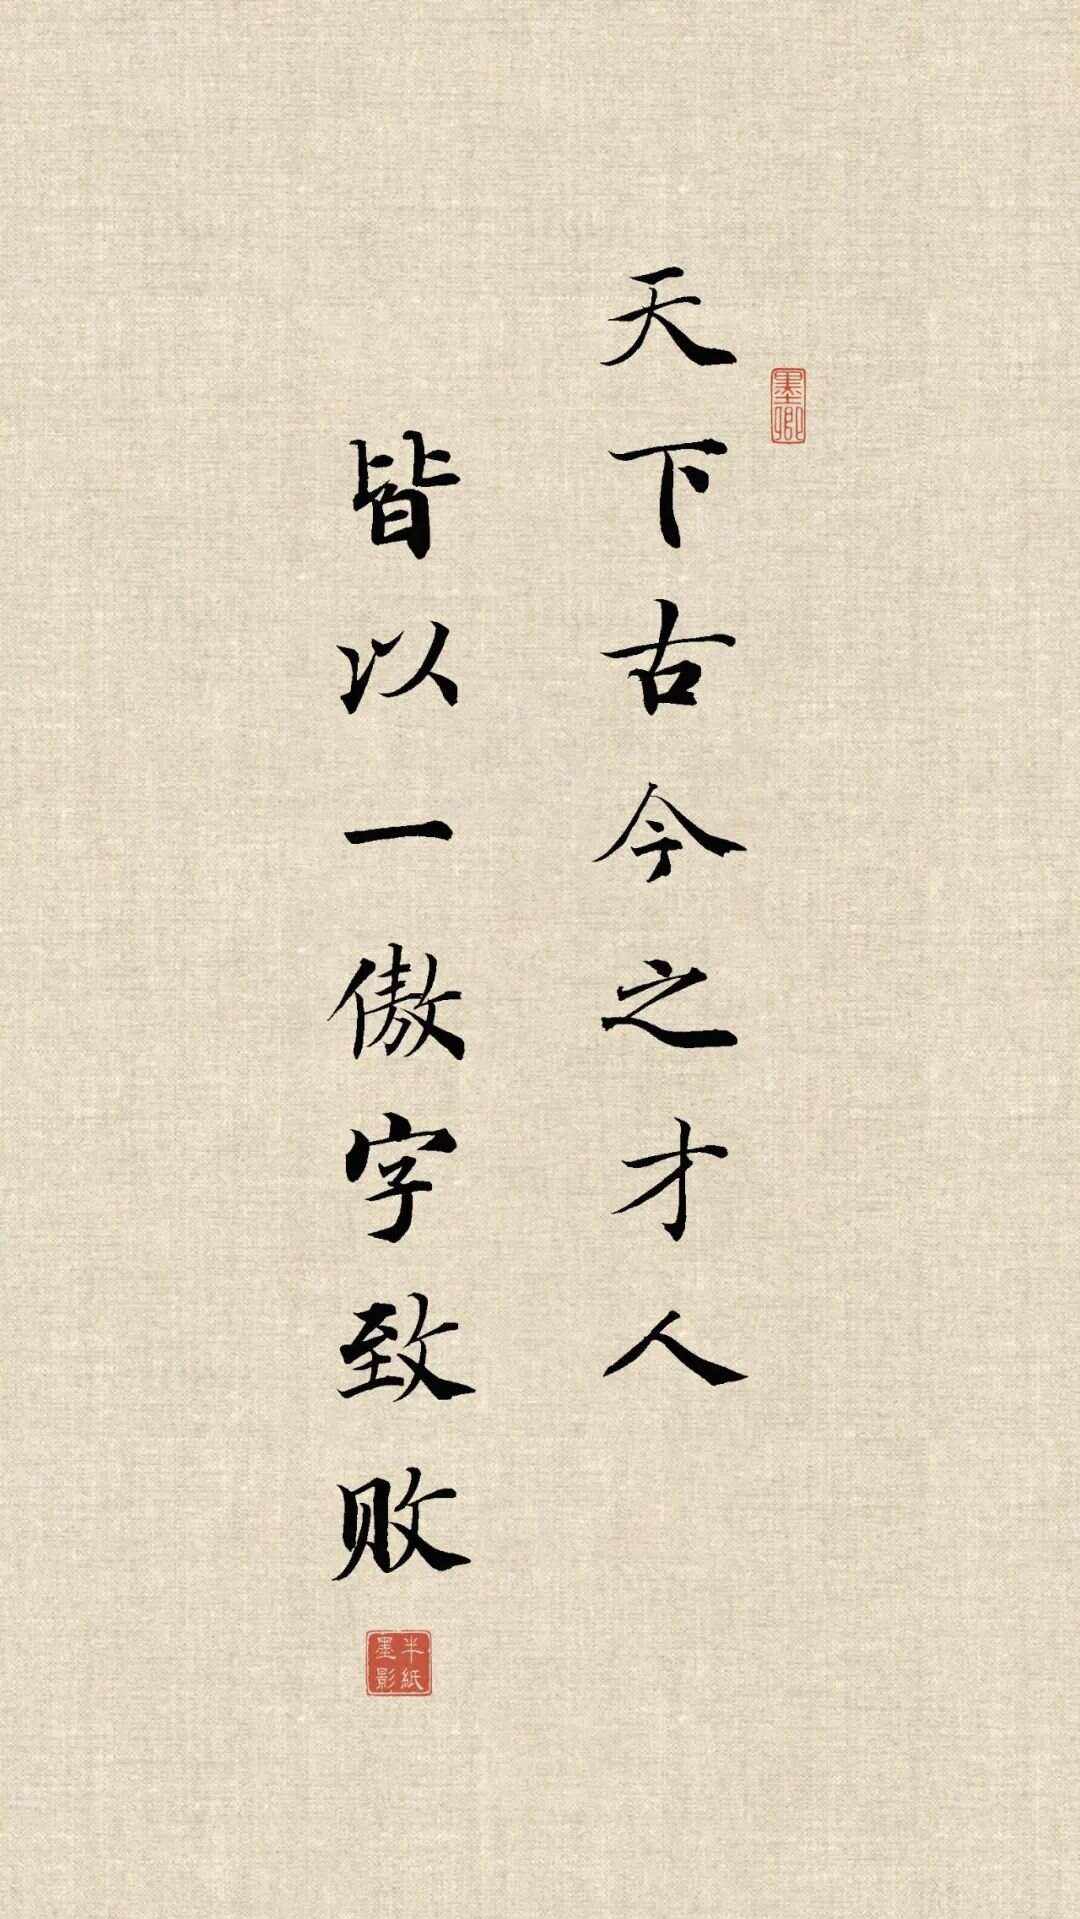 天下古今之才人
皆以一傲字致败
墨卿
半纸墨影